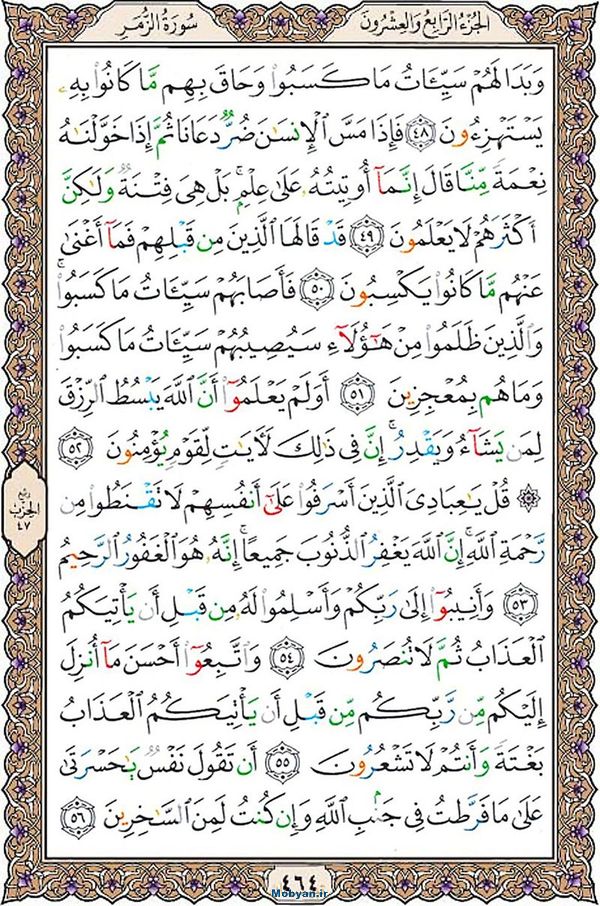 سُورَةُ الزُّمَرِ
الجُزْءُ الرَّابِعُ وَالعِشْرُونَ
وَبَدَا لَهُمْ سَيِّـَٔاتُ مَا كَسَبُوا۟ وَحَاقَ بِهِم مَّا كَانُوا۟ بِهِۦ
يَسْتَهْزِءُونَ ﴿٤٨﴾ فَإِذَا مَسَّ ٱلْإِنسَٰنَ ضُرٌّ دَعَانَا ثُمَّ إِذَا خَوَّلْنَٰهُ
نِعْمَةً مِّنَّا قَالَ إِنَّمَآ أُوتِيتُهُۥ عَلَىٰ عِلْمٍۭ ۚ بَلْ هِىَ فِتْنَةٌ وَلَٰكِنَّ
أَكْثَرَهُمْ لَا يَعْلَمُونَ ﴿٤٩﴾ قَدْ قَالَهَا ٱلَّذِينَ مِن قَبْلِهِمْ فَمَآ أَغْنَىٰ
عَنْهُم مَّا كَانُوا۟ يَكْسِبُونَ ﴿٥٠﴾ فَأَصَابَهُمْ سَيِّـَٔاتُ مَا كَسَبُوا۟ ۚ
وَٱلَّذِينَ ظَلَمُوا۟ مِنْ هَٰٓؤُلَآءِ سَيُصِيبُهُمْ سَيِّـَٔاتُ مَا كَسَبُوا۟
وَمَا هُم بِمُعْجِزِينَ ﴿٥١﴾ أَوَلَمْ يَعْلَمُوٓا۟ أَنَّ ٱللَّهَ يَبْسُطُ ٱلرِّزْقَ
لِمَن يَشَآءُ وَيَقْدِرُ ۚ إِنَّ فِى ذَٰلِكَ لَءَايَٰتٍ لِّقَوْمٍ يُؤْمِنُونَ ﴿٥٢﴾
۞ قُلْ يَٰعِبَادِىَ ٱلَّذِينَ أَسْرَفُوا۟ عَلَىٰٓ أَنفُسِهِمْ لَا تَقْنَطُوا۟ مِن
رَّحْمَةِ ٱللَّهِ ۚ إِنَّ ٱللَّهَ يَغْفِرُ ٱلذُّنُوبَ جَمِيعًا ۚ إِنَّهُۥ هُوَ ٱلْغَفُورُ ٱلرَّحِيمُ
﴿٥٣﴾ وَأَنِيبُوٓا۟ إِلَىٰ رَبِّكُمْ وَأَسْلِمُوا۟ لَهُۥ مِن قَبْلِ أَن يَأْتِيَكُمُ
ٱلْعَذَابُ ثُمَّ لَا تُنصَرُونَ ﴿٥٤﴾ وَٱتَّبِعُوٓا۟ أَحْسَنَ مَآ أُنزِلَ
إِلَيْكُم مِّن رَّبِّكُم مِّن قَبْلِ أَن يَأْتِيَكُمُ ٱلْعَذَابُ
بَغْتَةً وَأَنتُمْ لَا تَشْعُرُونَ ﴿٥٥﴾ أَن تَقُولَ نَفْسٌ يَٰحَسْرَتَىٰ
عَلَىٰ مَا فَرَّطتُ فِى جَنۢبِ ٱللَّهِ وَإِن كُنتُ لَمِنَ ٱلسَّٰخِرِينَ ﴿٥٦﴾
ربع
الحزب
٤٧
٤٦٤
Mobyan.ir